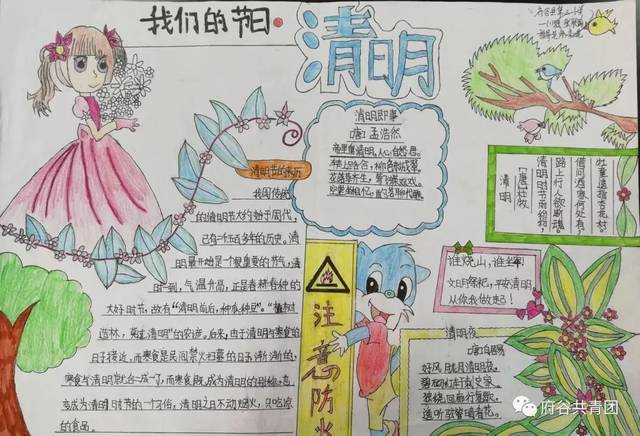 我们的节日
清明
清明节的来历
我国传统
的清明节大约始于周代,
已有二千五百多年的历史。清
明最开始是一个很重要的节气,清
明一到,气温升高,正是春耕春种的
大好时节,故有“清明前后,种瓜种豆”。“植树
造林,莫过清明”的农谚。后来,由于清明与寒食的
日子接近,而寒食是民间禁火扫墓的日子,渐渐的,
寒食与清明就合二为一了,而寒食既成为清明的别称,也
变成为清明时节的一个习俗,清明之日不动烟火,只吃凉
的食品。
清明即事
唐 孟浩然
帝里重清明,人心自愁思。
车声上路合,柳色东城翠。
花落草齐生,莺飞蝶双戏。
空堂坐相忆,酌茗聊代醉。
清明
[唐]杜牧
清明时节雨纷纷,
路上行人欲断魂。
借问酒家何处有,
牧童遥指杏花村。
谁烧山,谁坐牢!
文明祭祀,平安清明
从你我做起!
注意防火
清明夜
唐 白居易
好风胧月清明夜,
碧砌红轩刺史家。
独绕回廊行复歇,
遥听弦管暗看花。
府谷共青团